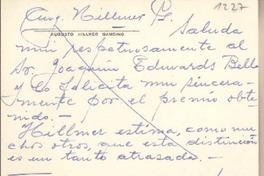 1227
Aug. Hillmer G. Saluda
AUGUSTO HILLMER GAMBINO
muy respetuosamente al
Sr. Joaquín Edwards Bello
y lo felicita muy sincera-
mente por el premio obte-
nido.-
Hillmer estima, como mu
chos otros, que esta distinción
es un tanto atrasada.-